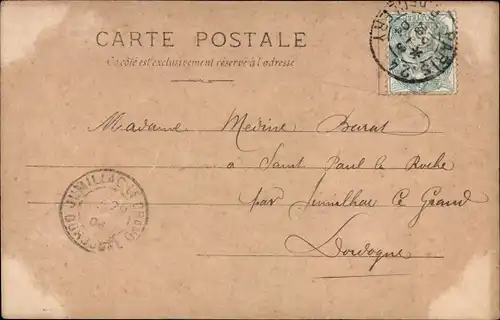 CARTE POSTALE
Ce côté est exclusivement réservé à l'adresse
PARIS 24
Madame Medine Barat
à Saint Paul la Roche
par Jumilhac le Grand
Dordogne
JUMILHAC-LE-GRAND